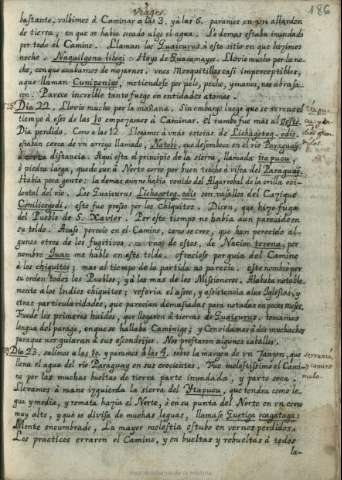 Viages. 186
bastante, volbimos á Caminar a las 3. y á las 6. paramos en un albardon
de tierra, en que se havia secado algo el agua. Lo demas estaba inundado
por todo el Camino. Llaman los Guaicurus á este sitio en que hizimos
noche, Naquiligena lihegi: Hoya de Guacamayos. Llovio mucho por la no-
che, con que acabamos de mojarnos. unos Mosquitillos casi imperceptibles,
aque llaman metiendose por pelo, pecho, y manos, nos abrasa-
ron. Parece increible tanto fuego en entidades atomas.
Dia 22. Llovio mucho por la mañana. Sin embargo luego que se sereno el
tiempo á eso de las 10 empezamos á Caminar. El rumbo fue mas al Oeste.
Dia perdido. Como a las 12. llegamos á unas
estaban cerca de un arroyo llamado, Natobi, que desemboca en el rio Paraguay
á corta distancia. Aqui esta el principio de la sierra, llamada Itapucu,
ó piedra larga, que de sur á Norte corre por buen trecho á vista del Paraguay.
Habia poca gente: la demas aun no habia venido del Algarrobal de la orilla occi-
dental del rio. Los Guaicurus, son vasallos del Cazique
este fue preso por los Chiquitos. Dicen, que hizo fuga
del Pueblo de S. Xavier. Por este tiempo no habia aun parecido en
su toldo. Acaso perecio en el Camino, como se cree, que han perecido al-
gunos otros de los fugitivos. unos de estos, de Nacion terena, por
nombre Juan me hablo en este toldo. ofreciose por guia del Camino
á los chiquitos; mas al tiempo de la partida no parecio. este nombro por
su orden todos los Pueblos, y á los mas de los Missioneros. Alababa notable-
mente á los Indios chiquitos: referia el aseo, y asistencia á las Iglesias, y
otras particularidades, que parecian demasiadas para notadas en pocos meses.
Fuede los primeros huidos, que llegaron á tierras de Guaicurus. tomamos
lengua del parage, en que se hallaba Caminigo; y Convidamos á dos muchachos
para que nos guiaran á sus escondrijos. Nos prestaron algunos caballos.
Dia 23. salimos a las 10. y paramos á las 4. sobre la margen de un Tajon, que
llena el agua del rio Paraguay en sus crecientes. Fue molestissimo el Cami-
no por las muchas bueltas de tierra parte inundada, y parte seca.
Llevamos á mano izquierda la sierra del Ytapucu, que tendra como le-
gua y media, y remata hazia el Norte, ó en su punta del Norte en un cerro
muy alto, y que se divisa de muchas leguas, llamase
Monte encumbrado. La mayor molestia estubo en vernos perdidos.
Los practicos erraron el Camino, y en bueltas y rebueltas á todos
la-